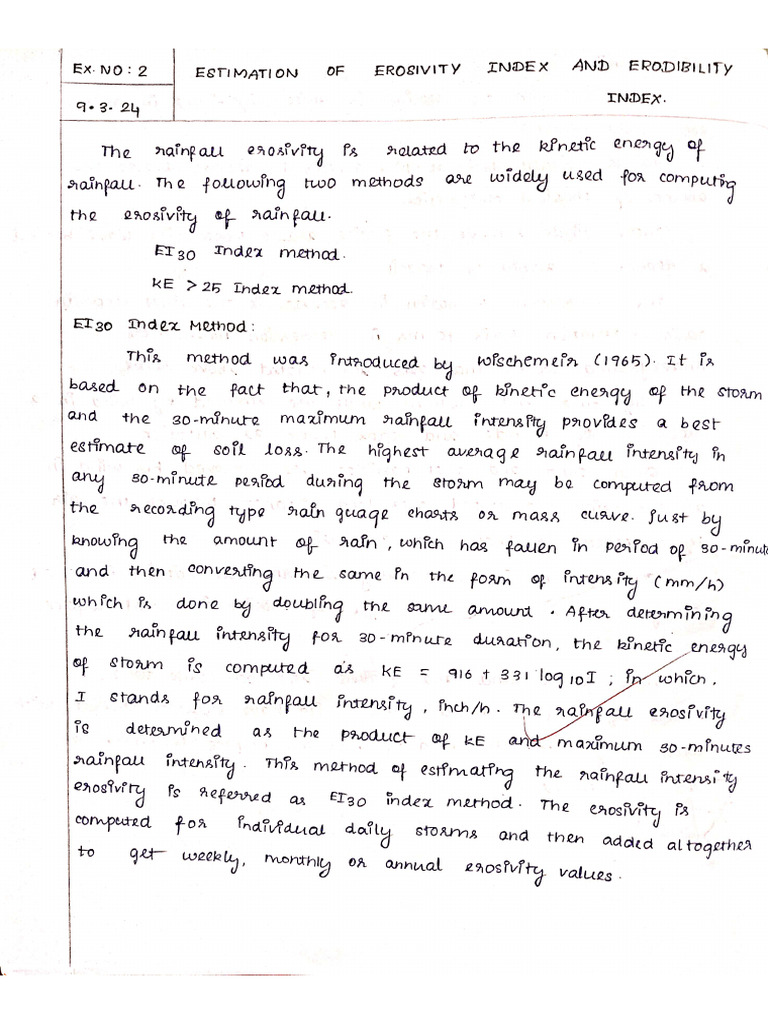 EX. NO : 2
ESTIMATION OF EROSIVITY INDEX AND ERODIBILITY
INDEX.
9.3.24
The rainfall erosivity is related to the kinetic energy of
rainfall. The following two methods are widely used for computing
the erosivity of rainfall.
EI30 Index method.
KE > 25 Index method.
EI30 Index Method:
This method was introduced by wischemeir (1965). It is
based on the fact that, the product of kinetic energy of the storm
and the 30-minute maximum rainfall intensity provides a best
estimate of soil loss. The highest average rainfall intensity in
any 30-minute period during the storm may be computed from
the recording type rain guage charts or mass curve. Just by
knowing the amount of rain, which has fallen in period of 30-minute
and then converting the same in the form of intensity (mm/h)
which is done by doubling the same amount. After determining
the rainfall intensity for 30-minute duration, the kinetic energy
of storm is computed as KE = 916 + 331 log10 I ; in which,
I stands for rainfall intensity, inch/h. The rainfall erosivity
is determined as the product of KE and maximum 30-minutes
rainfall intensity. This method of estimating the rainfall intensity
erosivity is referred as EI30 index method. The erosivity is
computed for individual daily storms and then added altogether
to get weekly, monthly or annual erosivity values.